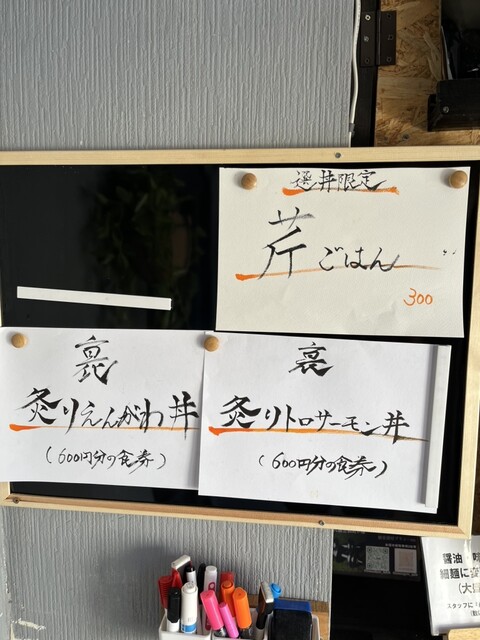 選丼限定
芹ごはん
300
裏
炙りえんがわ丼
(600円分の食券)
裏
炙りトロサーモン丼
(600円分の食券)
醤油・味
細麺に変
(大
スタッフに